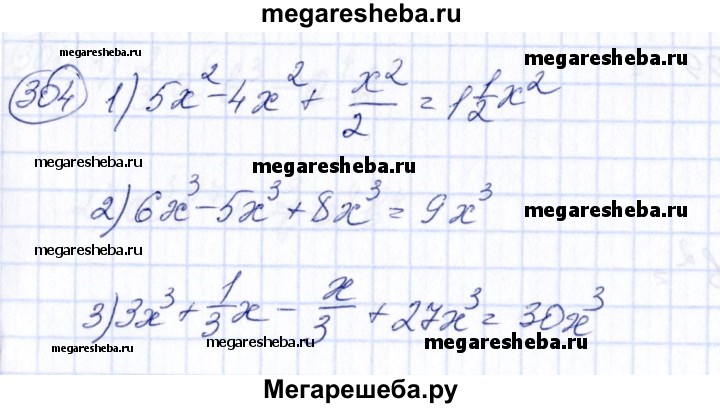 megaresheba.ru
304 1) 5x² - 4x² + x²/2 = 1 1/2 x²
megaresheba.ru megaresheba.ru
megaresheba.ru megaresheba.ru
2) 6x³ - 5x³ + 8x³ = 9x³
megaresheba.ru
megaresheba.ru
3) 3x³ + 1/3 x - x/3 + 27x³ = 30x³
megaresheba.ru megaresheba.ru megaresheba.ru
Мегарешеба.ру